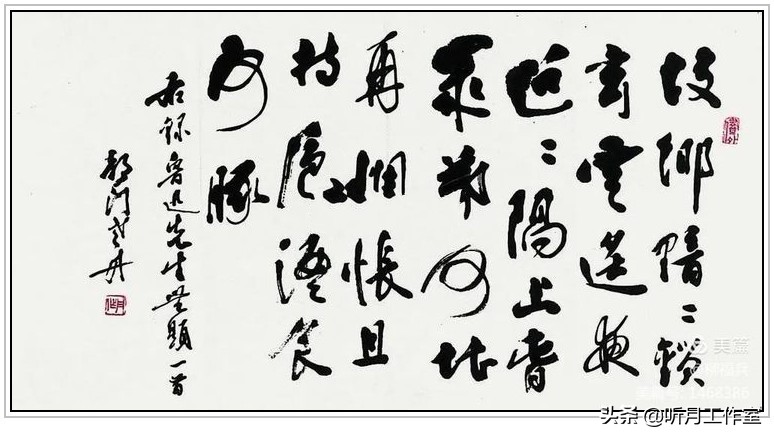 故鄉黯〻鎖
玄雲遥夜
迢〻隔上春
歲暮何堪
再惆悵且
持卮酒食
河豚
右錄魯迅先生無題一首
都门
美篇
1468386
头条 @听月工作室